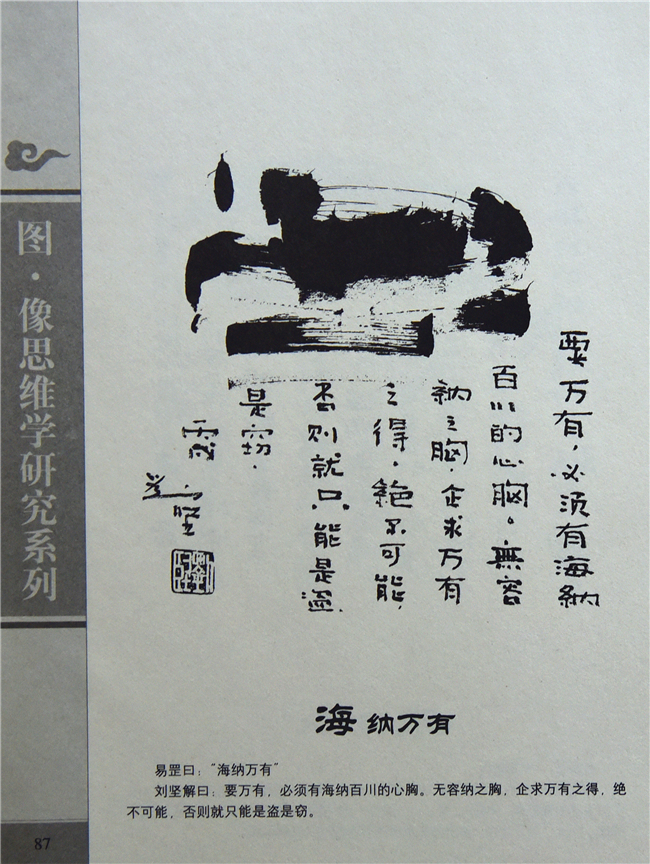 图·像思维学研究系列
要万有,必须有海納
百川的心胸。無容
納之胸,企求万有
之得,絶不可能,
否则就只能是盗
是窃.
海纳万有
易罡曰:“海纳万有”
刘坚解曰:要万有,必须有海纳百川的心胸。无容纳之胸,企求万有之得,绝
不可能,否则就只能是盗是窃。
87